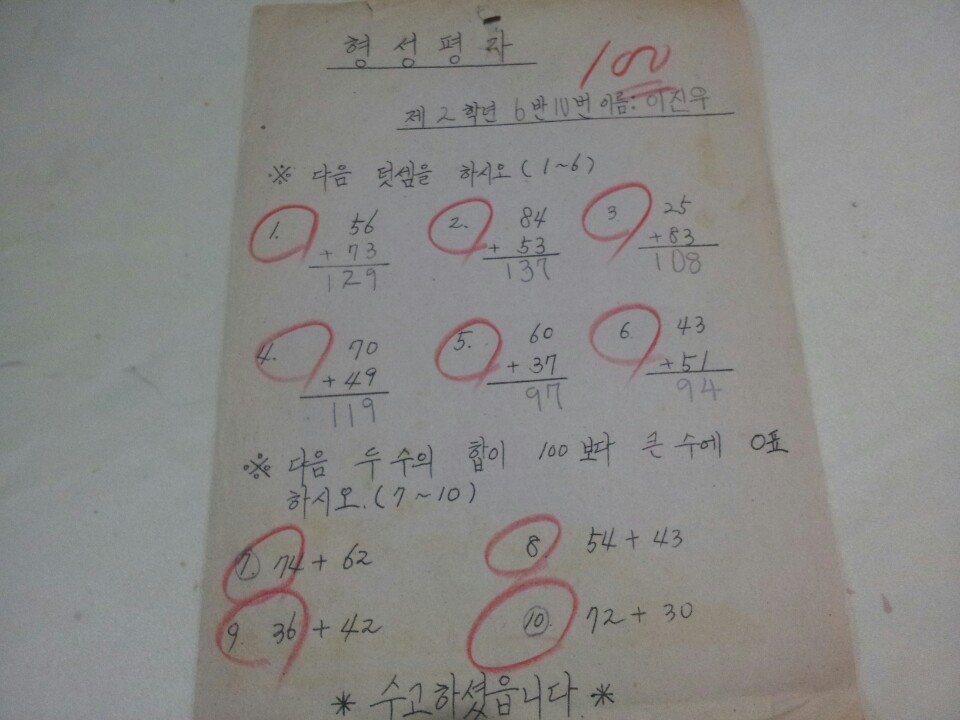 형성평가
100
제 2 학년 6 반 10 번 이름: 이진우
※ 다음 덧셈을 하시오 (1~6)
1. 56 + 73 129
2. 84 + 53 137
3. 25 + 83 108
4. 70 + 49 119
5. 60 + 37 97
6. 43 + 51 94
※ 다음 두 수의 합이 100 보다 큰 수에 O표
하시오. (7~10)
7. 74 + 62
8. 54 + 43
9. 36 + 42
10. 72 + 30
* 수고하셨읍니다 *